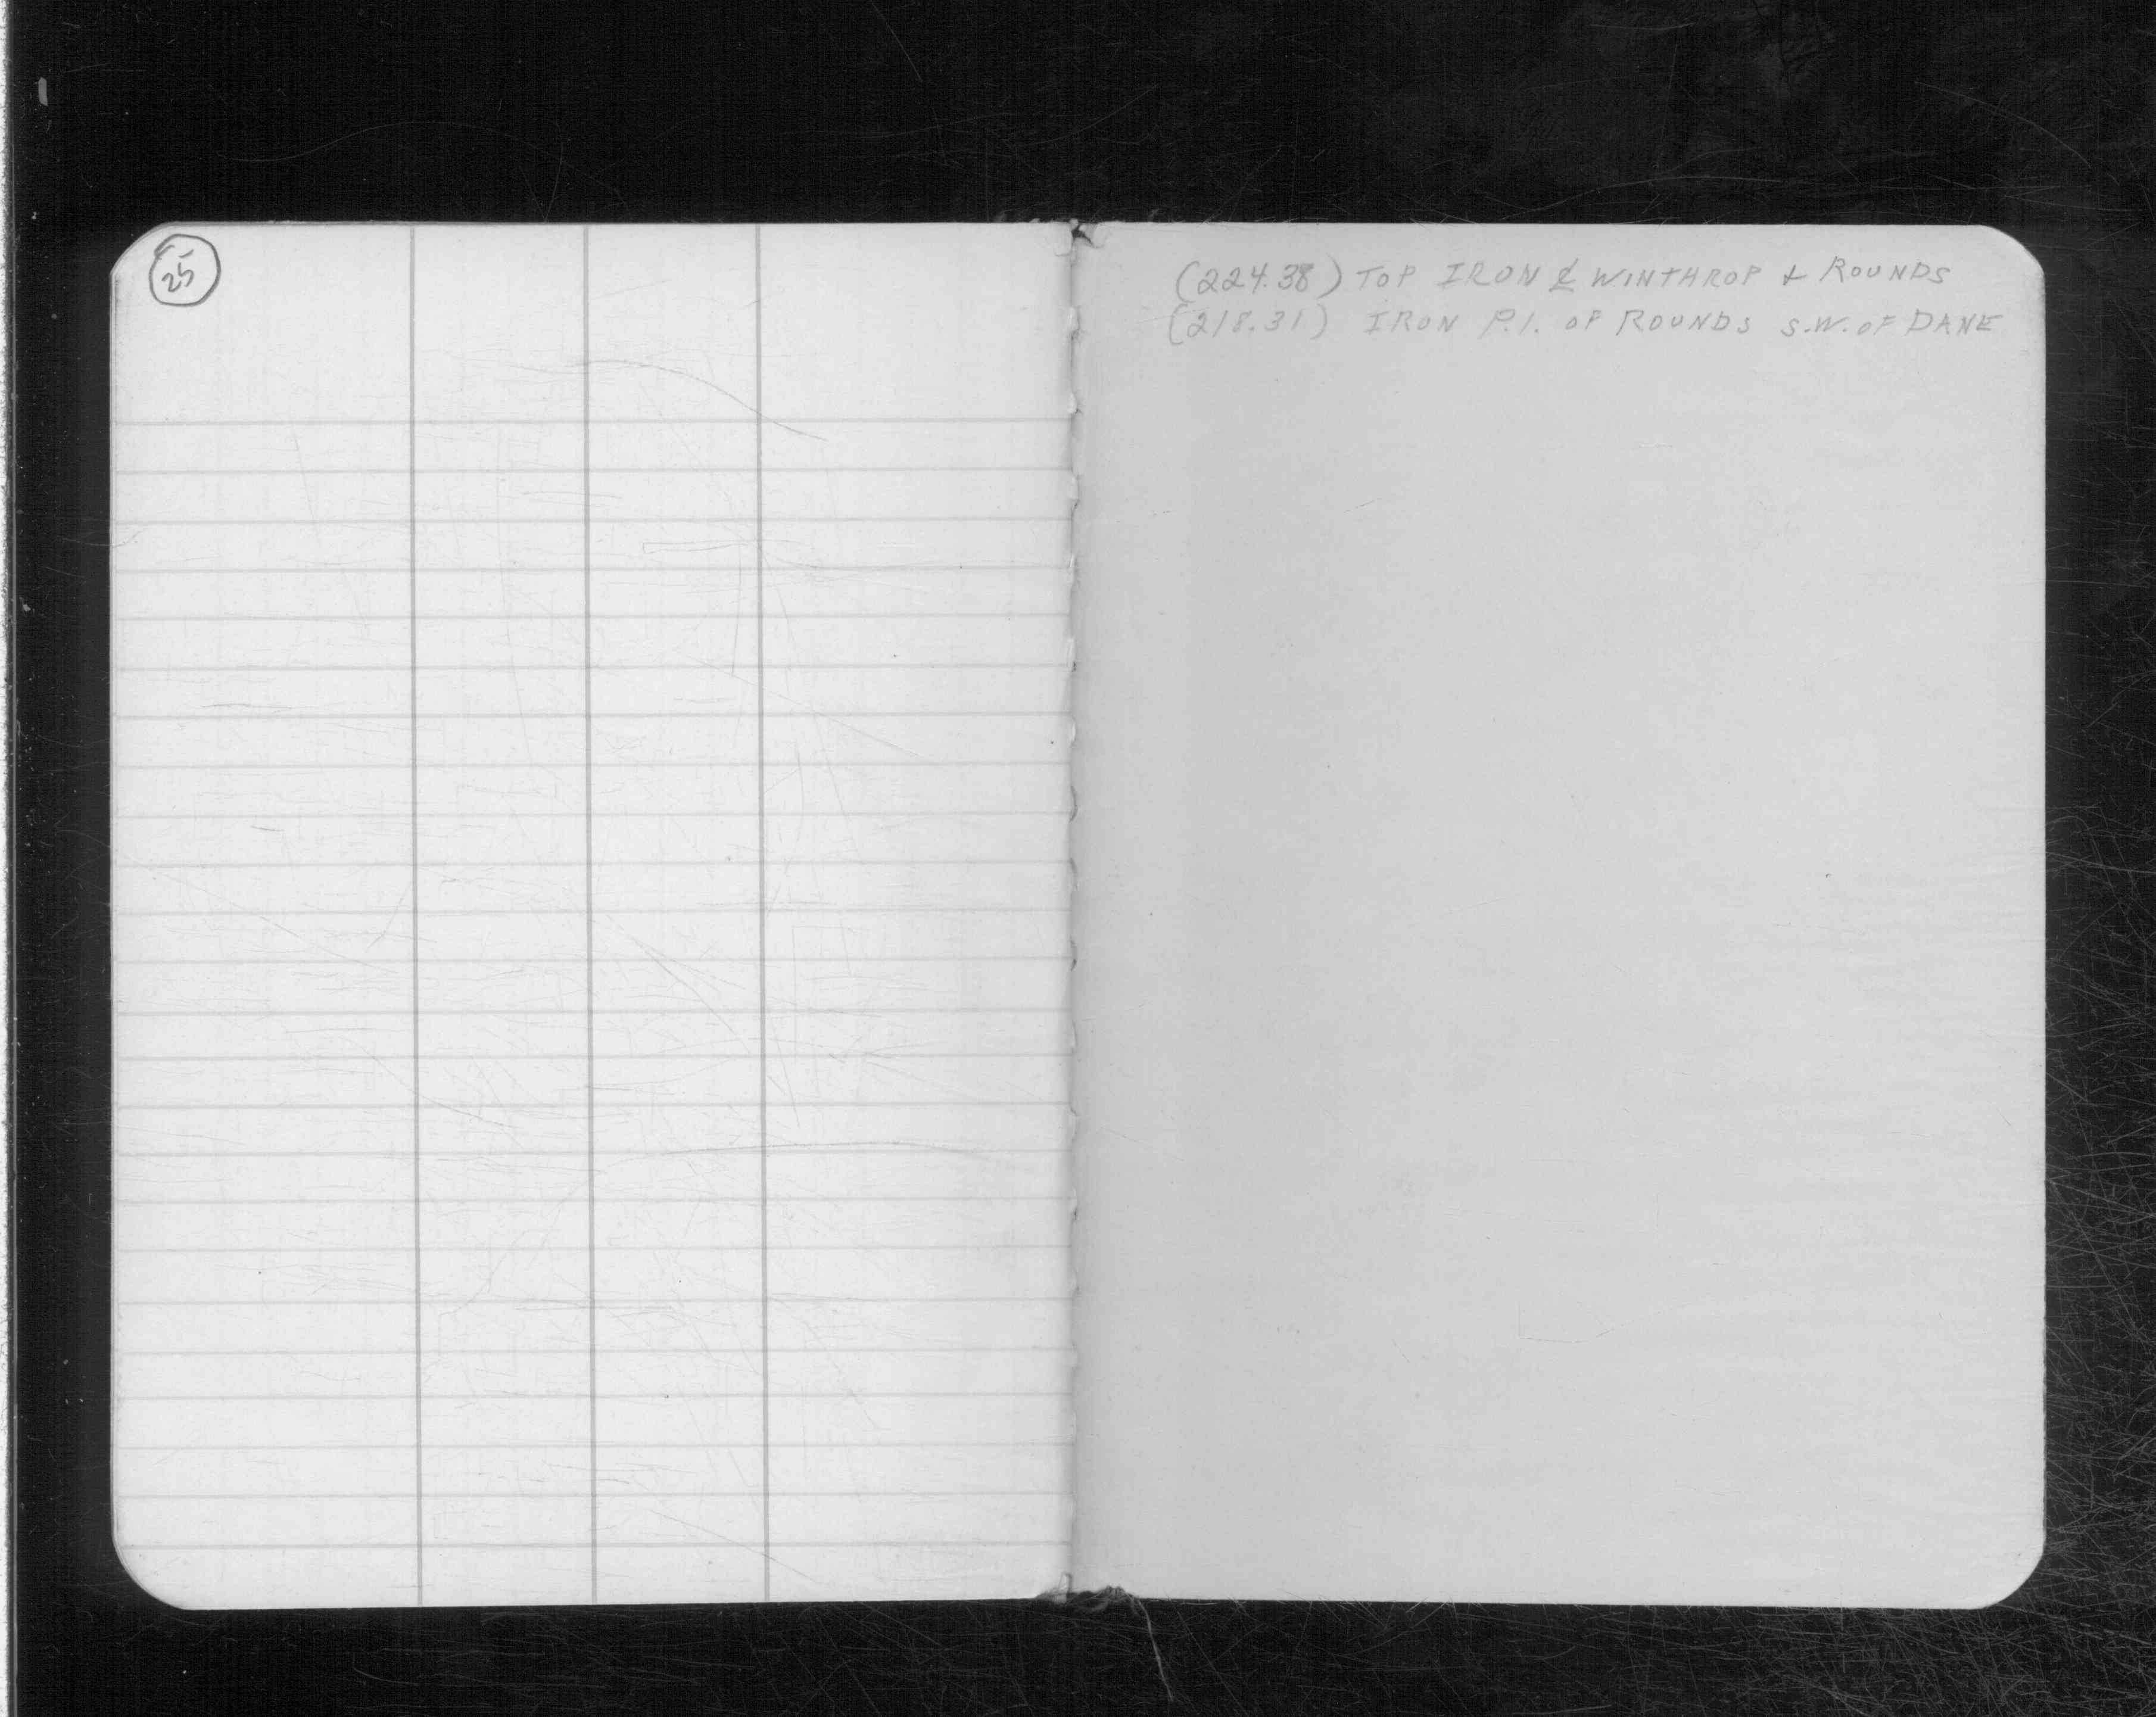 25
(224.38) TOP IRON ℄ WINTHROP & ROUNDS
(218.31) IRON P.I. OF ROUNDS S.W. OF DANE